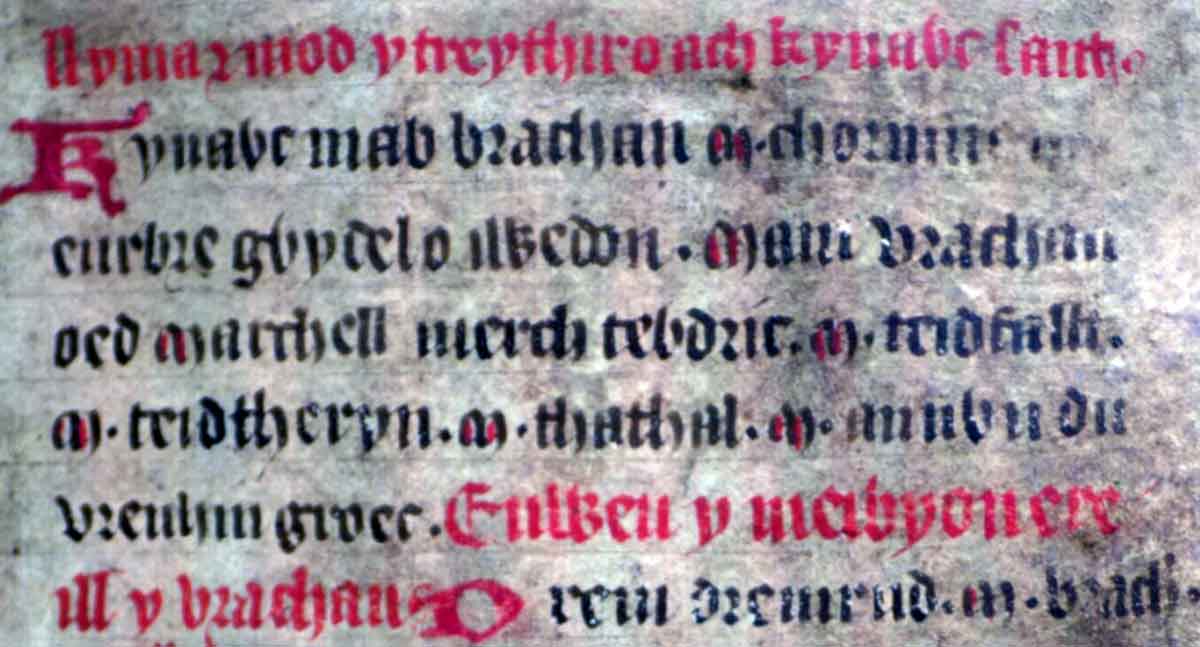 llyma r mod y treythir o ach kynaỽc sant.
Kynaỽc mab brachan m. chormuc
eurbre gỽydel o iỽerdon. Mam vrachan
oed Marchell merch teỽdric. m. teidfallt.
m. teidtheryn. m. thathal. m. annỽn du
vrenhin groec. Enỽeu y meibyon ere
ill y brachan D rem dremrud. m. brach